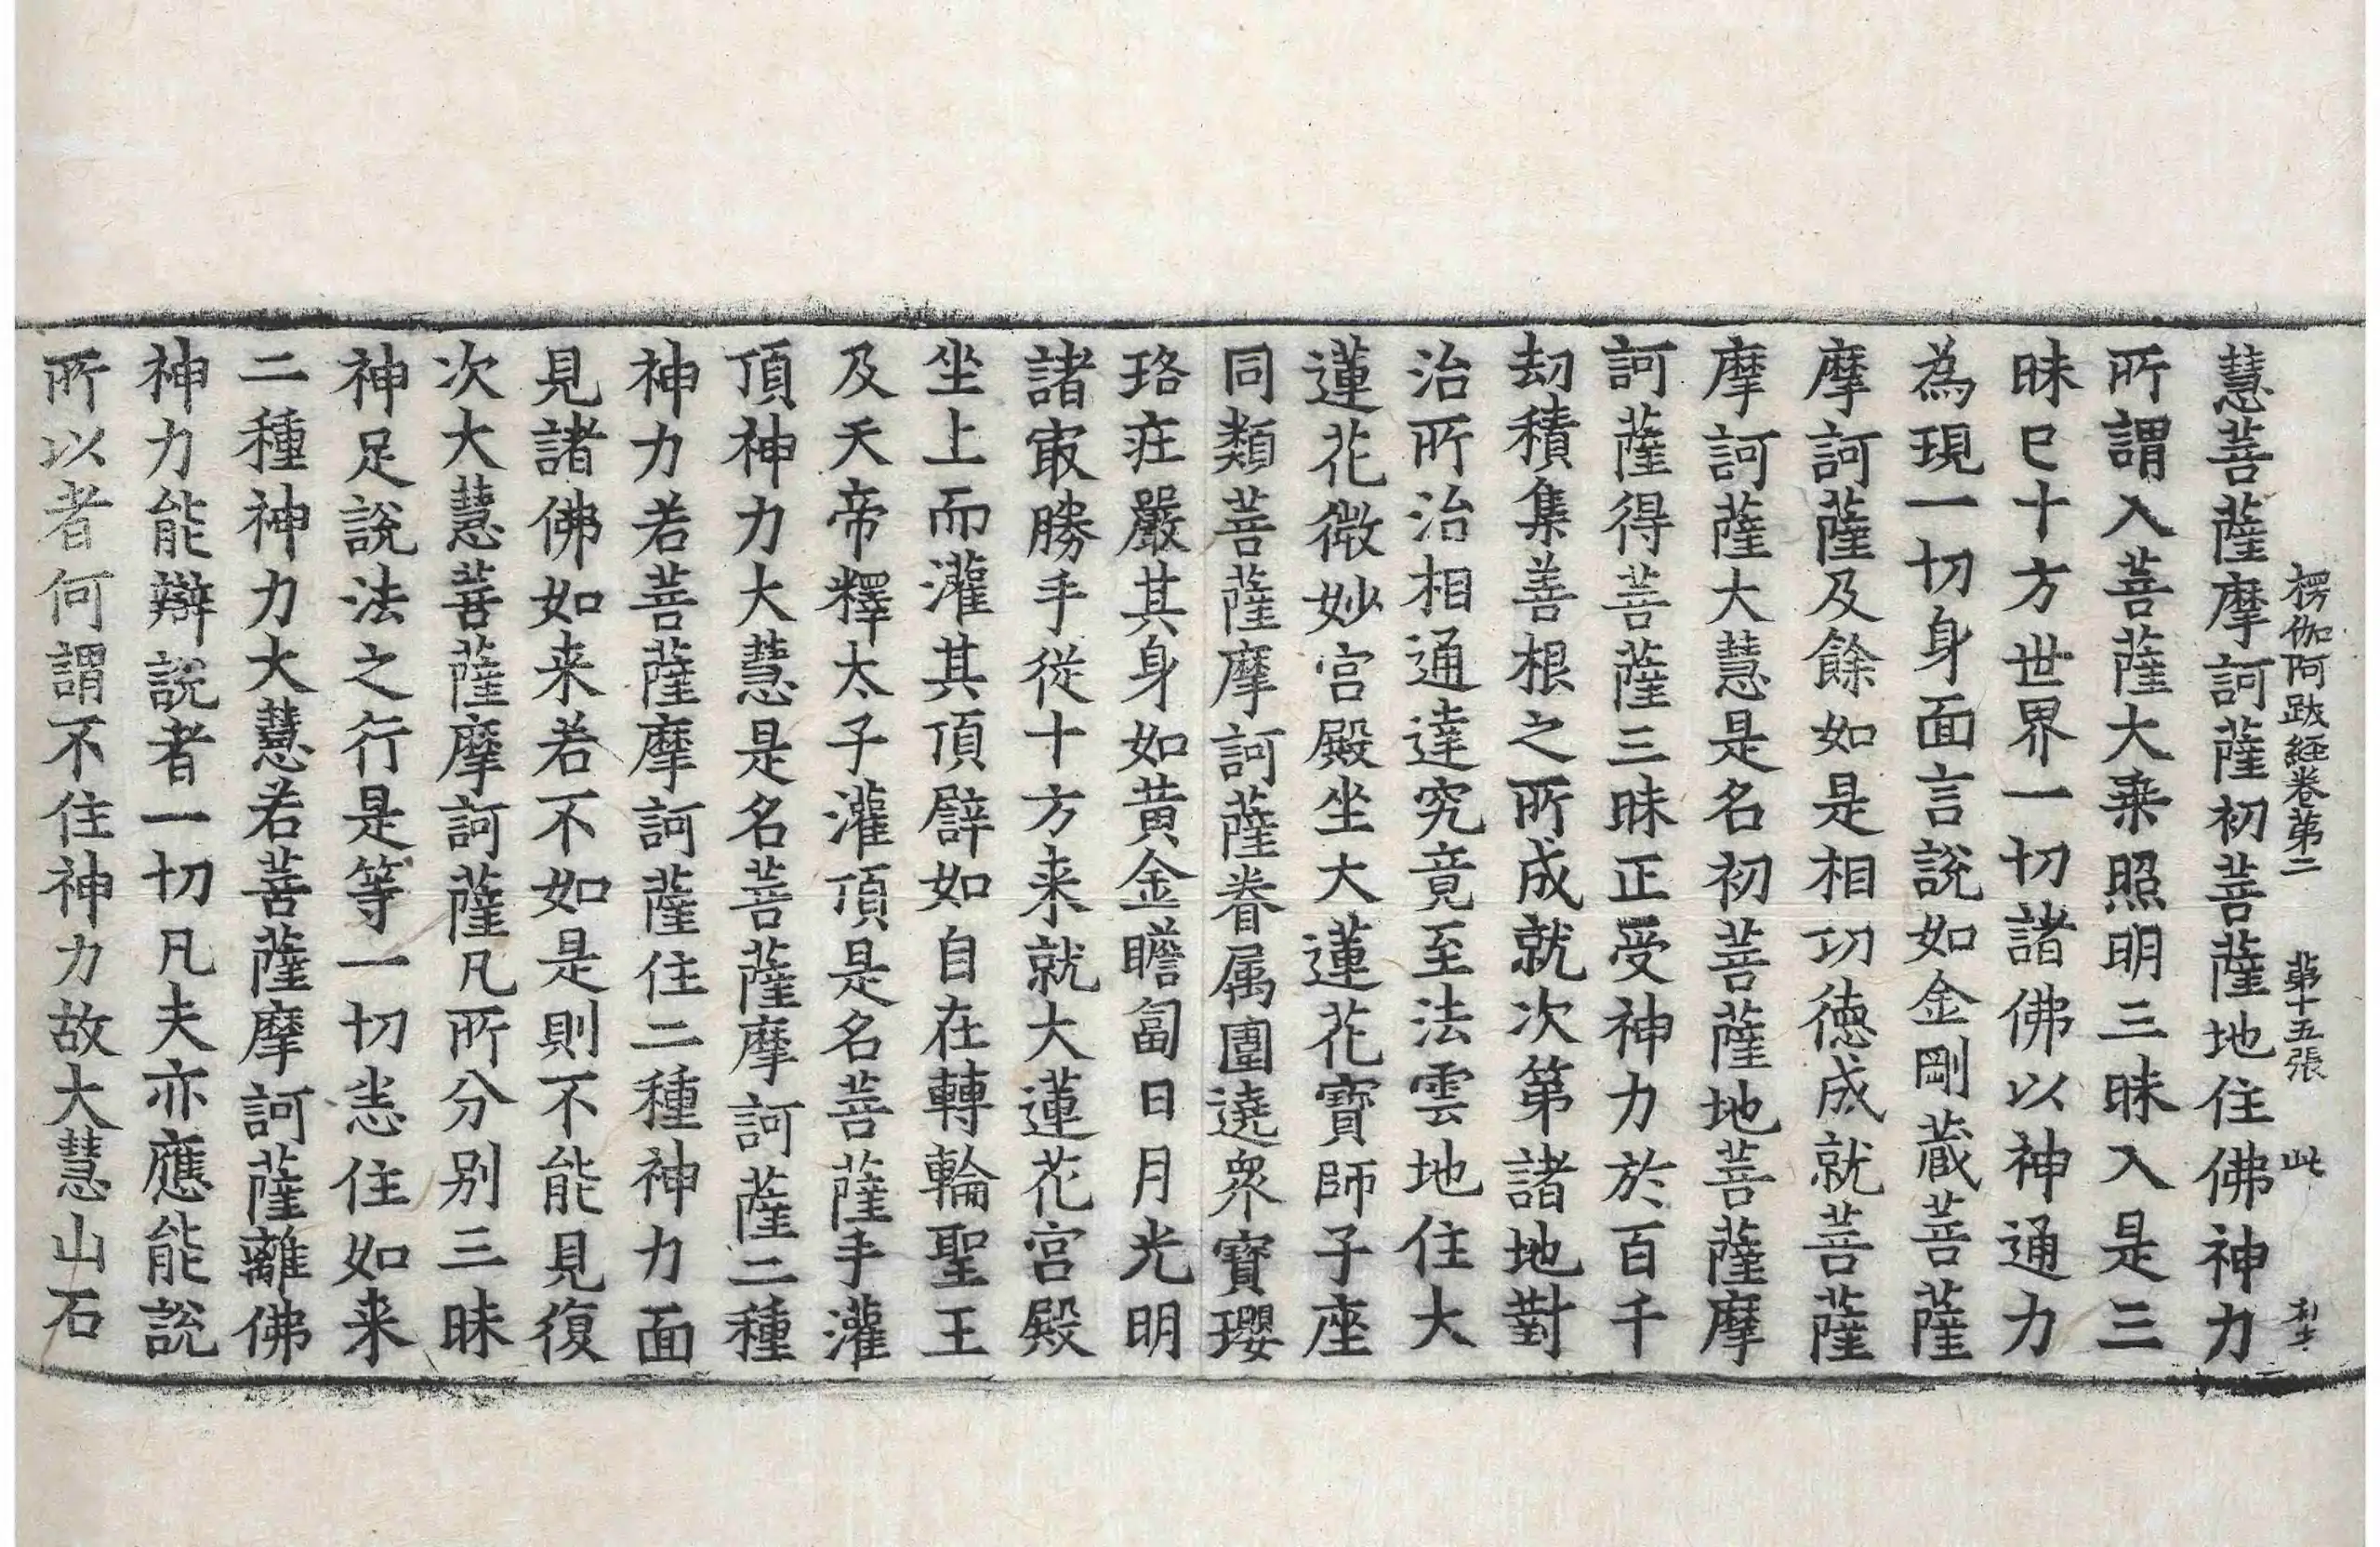 楞伽阿跋経卷苐二　苐十五張　此
慧菩薩摩訶薩初菩薩地住佛神力
所謂入菩薩大乗照明三昧入是三
昧巳十方世界一切諸佛以神通力
為現一切身面言說如金剛蔵菩薩
摩訶薩及餘如是相功徳成就菩薩
摩訶薩大慧是名初菩薩地菩薩摩
訶薩得菩薩三昧正受神力於百千
劫積集善根之所成就次第諸地對
治所治相通達究竟至法雲地住大
蓮花微妙宮殿坐大蓮花寶師子座
同類菩薩摩訶薩眷属圍遶衆寶瓔
珞莊嚴其身如黄金瞻蔔日月光明
諸㝡勝手從十方来就大蓮花宮殿
坐上而灌其頂譬如自在轉輪聖王
及天帝釋太子灌頂是名菩薩手灌
頂神力大慧是名菩薩摩訶薩二種
神力若菩薩摩訶薩住二種神力面
見諸佛如来若不如是則不能見復
次大慧菩薩摩訶薩凡所分别三昧
神足說法之行是等一切悉住如来
二種神力大慧若菩薩摩訶薩離佛
神力能辯說者一切凡夫亦應能說
所以者何謂不住神力故大慧山石